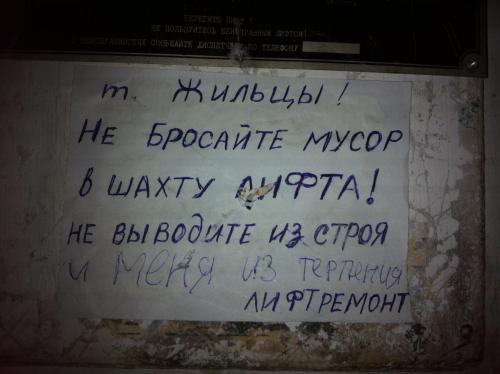 БЕРЕГИТЕ ЛИФТ!
НЕ ПОЛЬЗУЙТЕСЬ НЕИСПРАВНЫМ ЛИФТОМ!
О НЕИСПРАВНОСТЯХ СООБЩАЙТЕ ДИСПЕТЧЕРУ ПО ТЕЛЕФОНУ
т. Жильцы!
Не бросайте мусор
в шахту лифта!
не выводите из строя
и меня из терпения
Лифтремонт